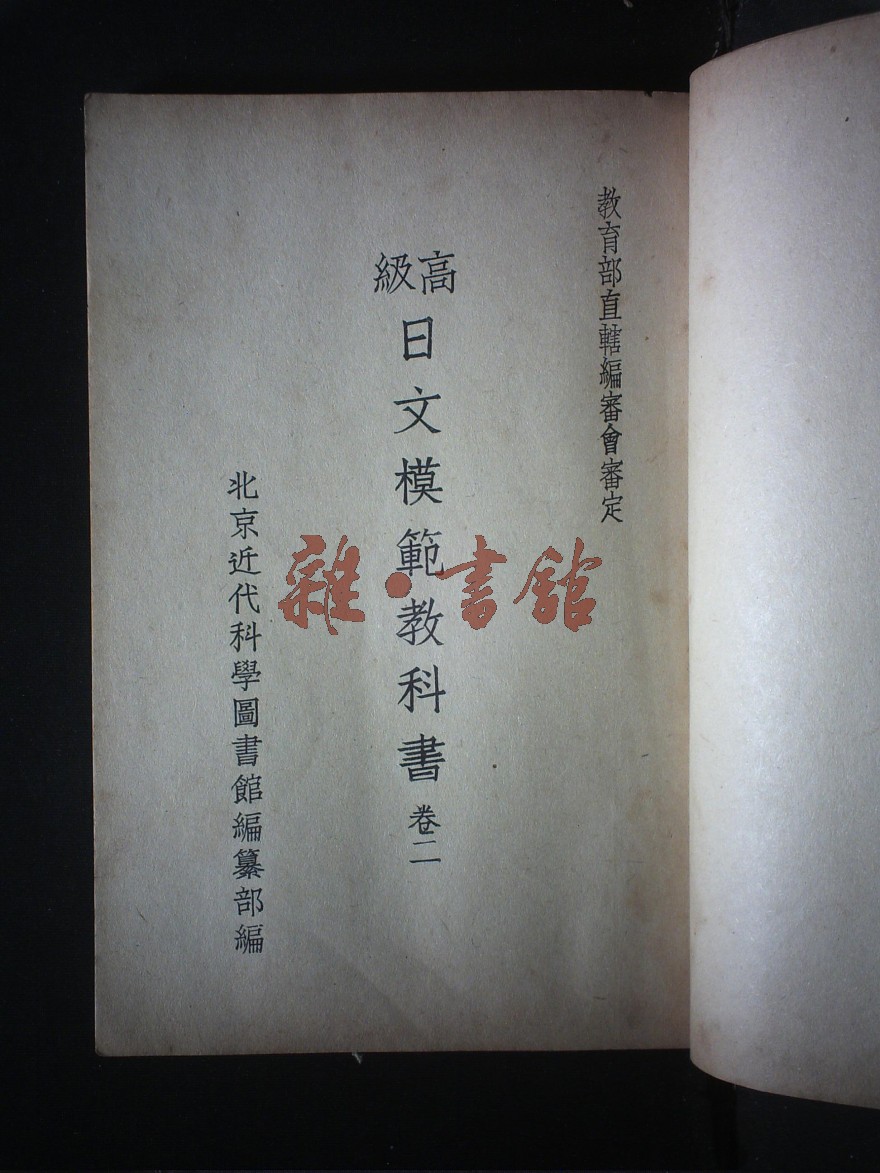 教育部直轄編審會審定
高級
日文模範教科書 卷二
北京近代科學圖書館編纂部編
雜·書館